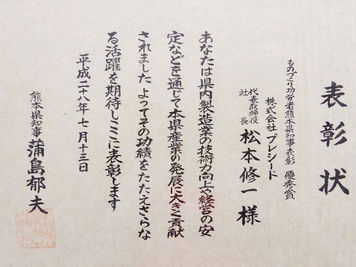 表彰状
ものづくり功労者熊本県知事表彰 優秀賞
株式会社プレシード
代表取締役社長 松本修一様
あなたは県内製造業の技術力向上や経営の安
定などを通じて本県産業の発展に大きく貢献
されました よってその功績をたたえさらな
る活躍を期待しここに表彰します
平成二十八年七月十三日
熊本県知事 蒲島郁夫